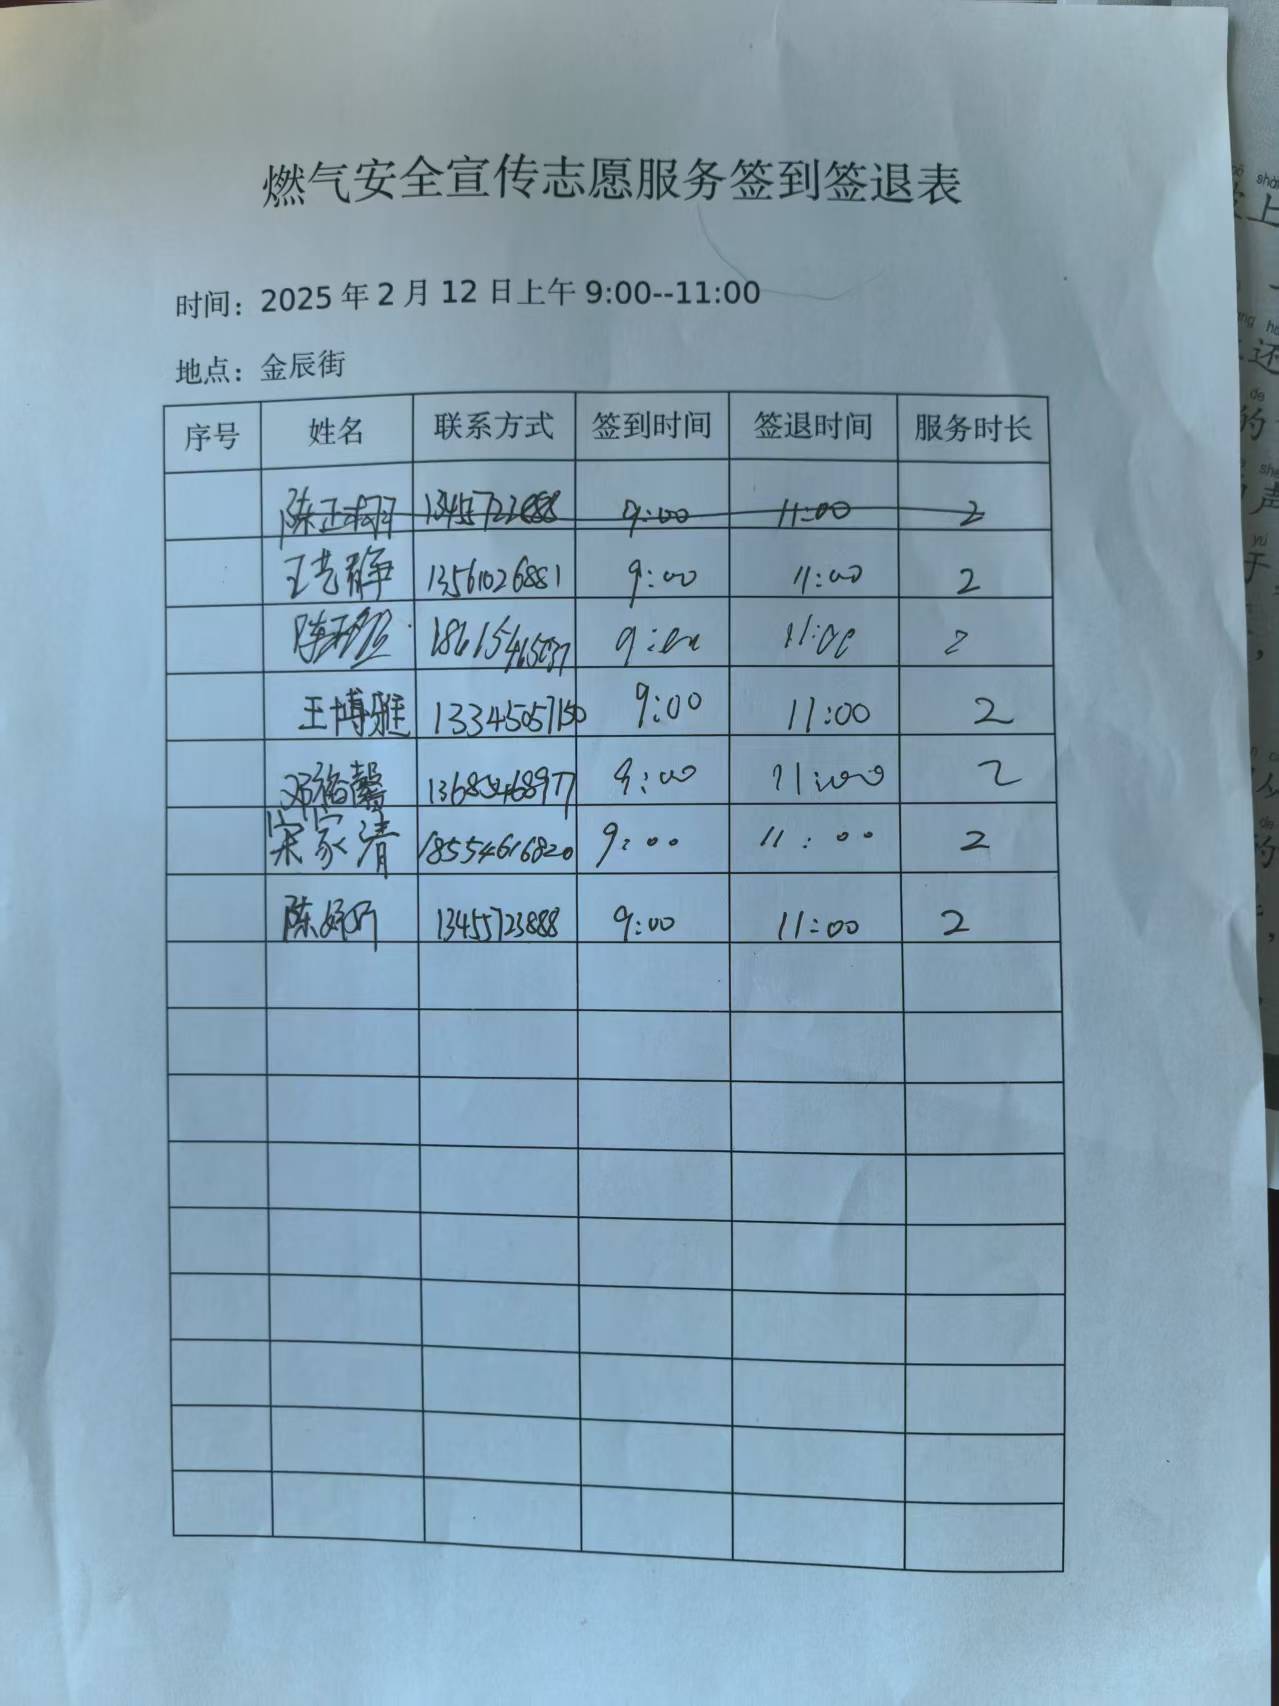 燃气安全宣传志愿服务签到签退表
时间：2025年2月12日上午9:00--11:00
地点：金辰街
序号 姓名 联系方式 签到时间 签退时间 服务时长
陈正 9:00 11:00 2
王艺静 13561026881 9:00 11:00 2
陈 18615465037 9:00 11:00 2
王博雅 13345057150 9:00 11:00 2
邓裕馨 13685468977 9:00 11:00 2
宋家清 18554616820 9:00 11:00 2
陈婷 13455723888 9:00 11:00 2
上
还
的
声
于